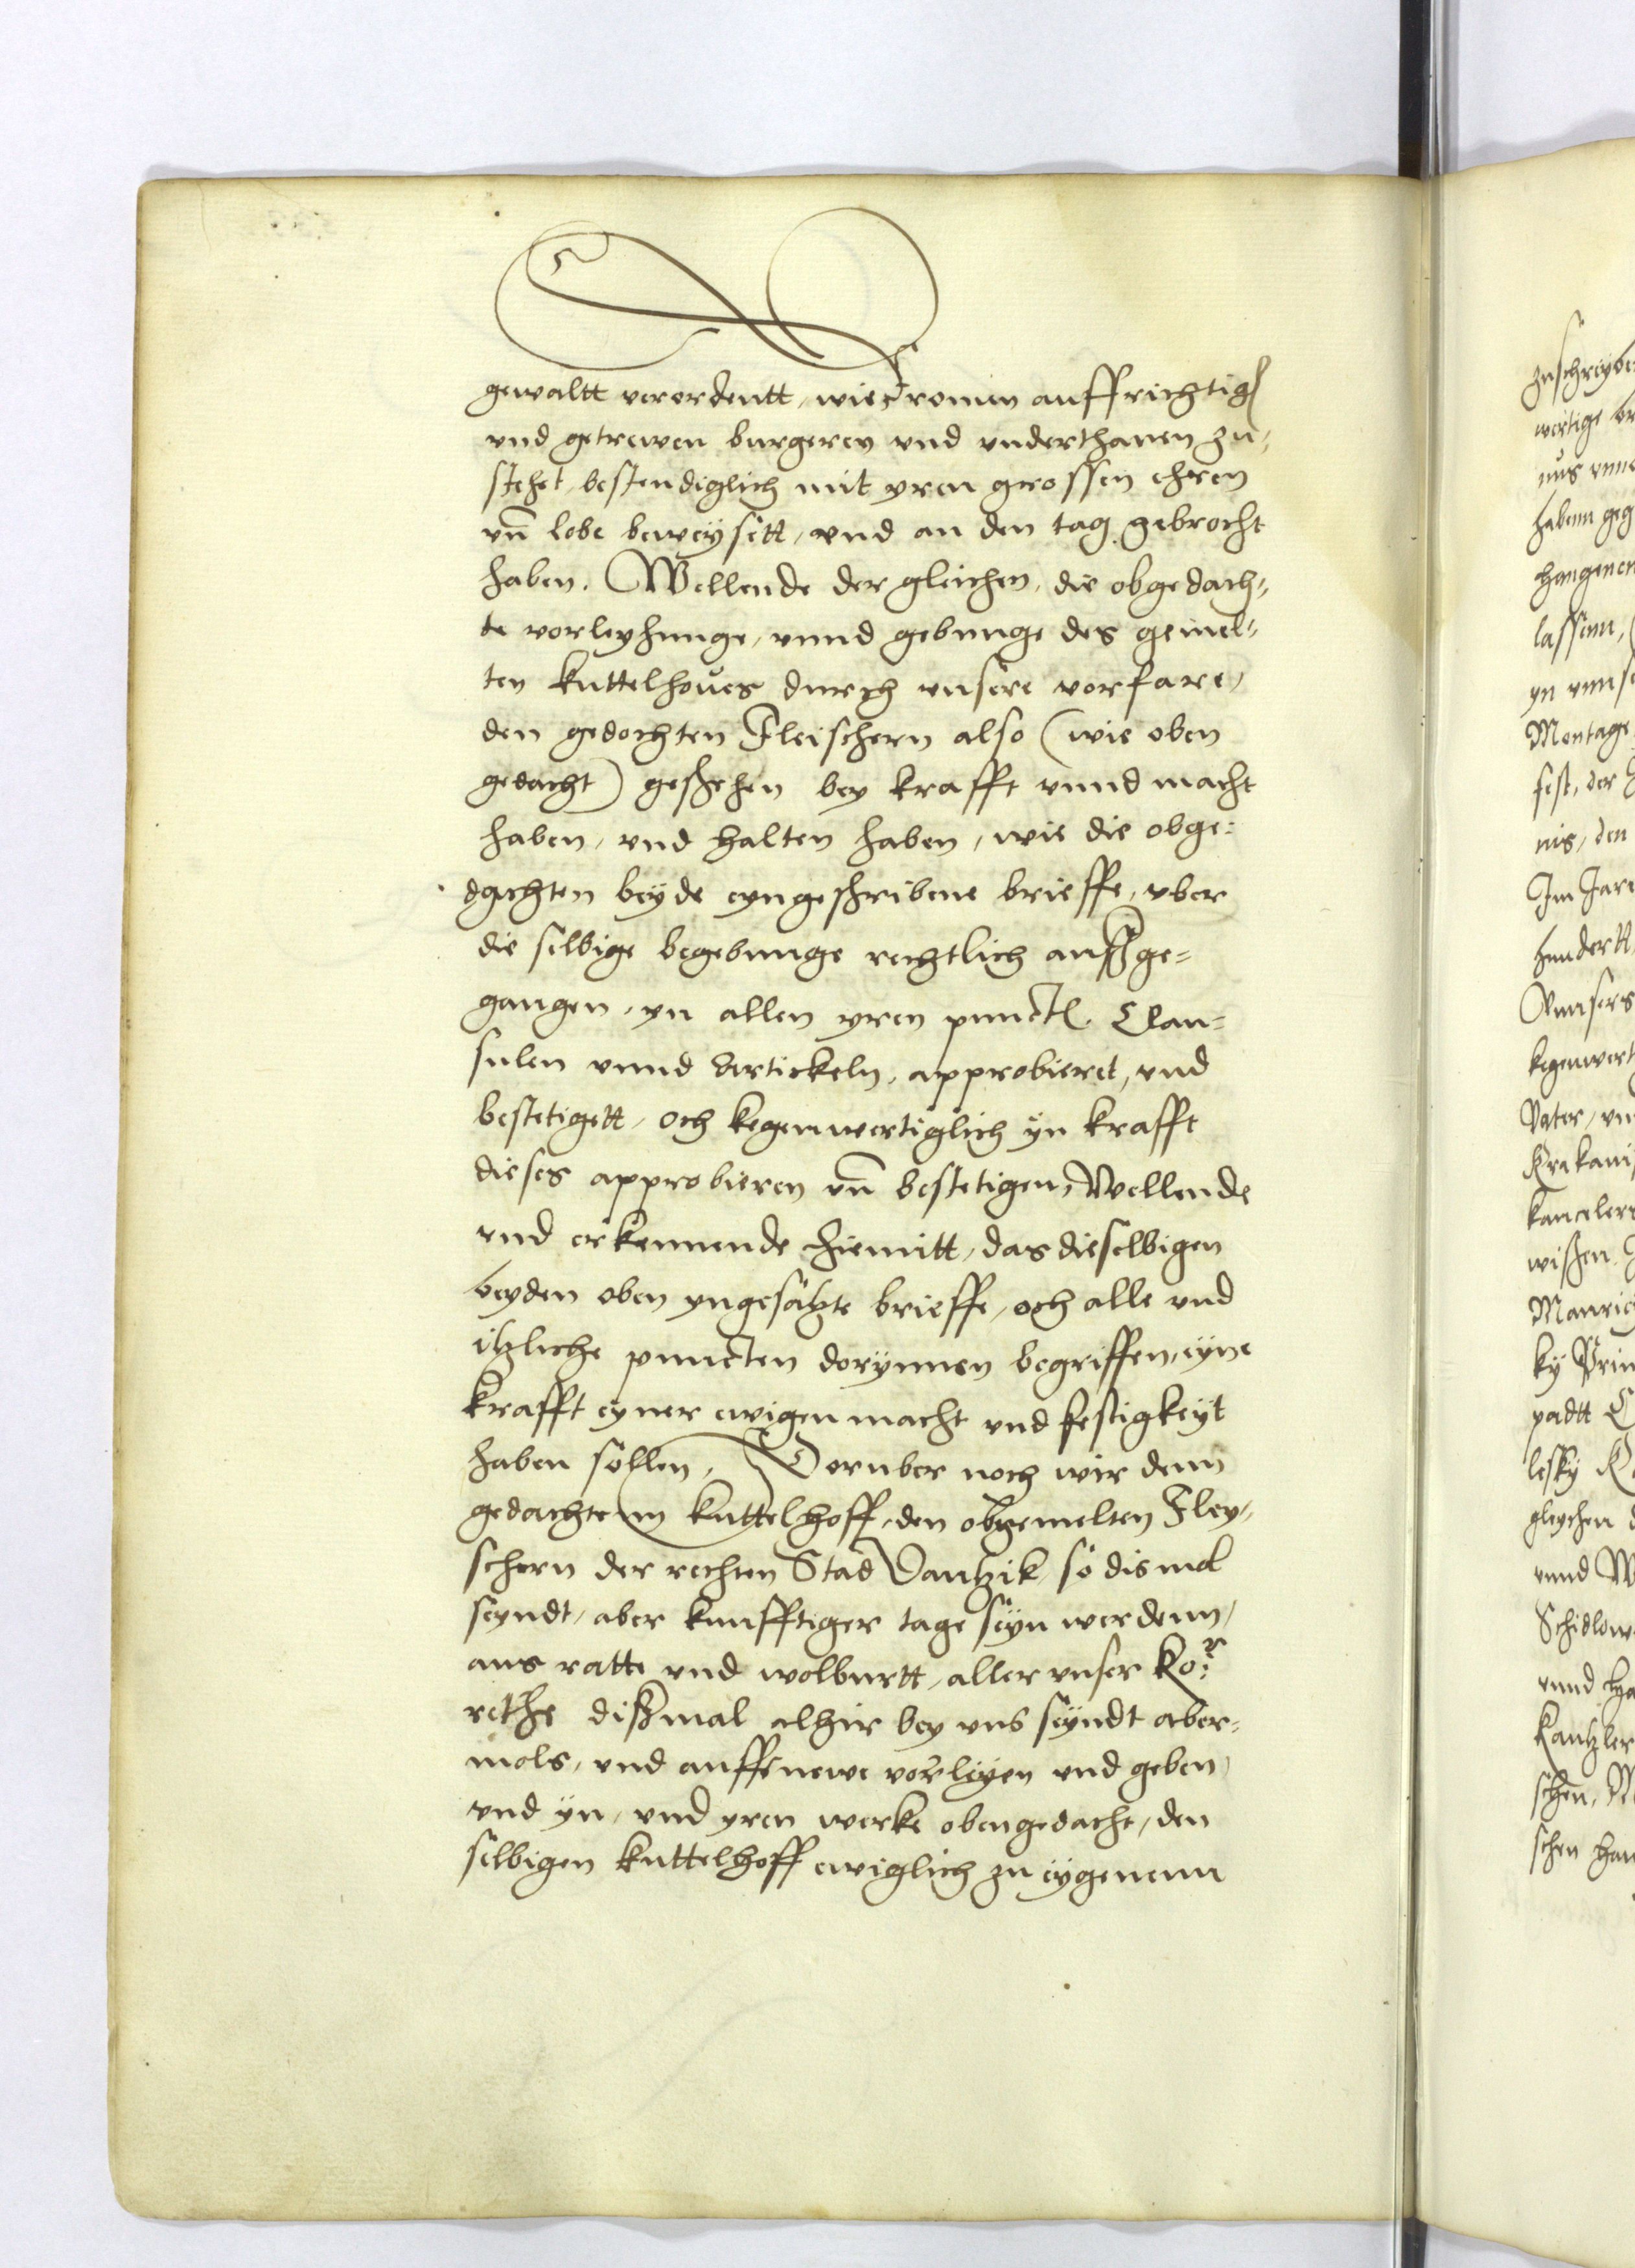 gewaltt verordentt, wie fromen auffrichtigen
vnd getrewen burgeren vnd vnderthanen zu¬
stehet, bestendiglich mit yren grossen ehren
vn̄ lobe beweysett, vnd an den tag gebrocht
haben. Wellende der gleichen, die obgedach¬
te vorleyhunge, vnnd gebunge des gemel¬
ten kuttelhoues durch vnsere vorfare,
den gedochten Fleischern also (wie oben
gedacht) geschehen bey krafft vnnd macht
haben, vnd halten haben, wie die obge¬
dachten beyde eyngeschribene brieffe, vber
die selbige begebunge rechtlich aussge¬
gangen, yn allen yren punctl. Clau¬
sulen vnnd Artickeln, approbieret, vnd
bestetigett, och kegenwertiglich yn krafft
dieses approbieren vn̄ bestetigen, Wellende
vnd erkennende hiemitt, das dieselbigen
beyden oben yngesatzte brieffe, och alle vnd
itzliche puncten dorynnen begriffen, eyne
krafft eyner ewigen macht vnd festigkeyt
haben sollen, Doruber noch wir denn
gedachten kuttelhoff, den obgemelten Fley¬
schern der rechten Stad Dantzik so dis mal
seyndt, aber kunfftiger tage seyn werdenn,
aus ratte vnd wolburtt, aller vnser Ko:r
rethe dißmal alhir bey vns seyndt aber¬
mols, vnd auffs newe vorleyen vnd geben,
vnd yn, vnd yren werke obengedacht, den
selbigen kuttelhoff ewiglich zu eygenenn
zuschreyben
wertige
haben
lassenn,
Montage
fest, der
nis, den
Im Jare
hundertt
Vnnsers
kegenwert
Vater, vn
Krakaui
kanceler
wissen
Maurici
ky Prim
padtt
lesky
gleychen
vnnd
Schidlow
vnnd
Kantzler
schen
schen